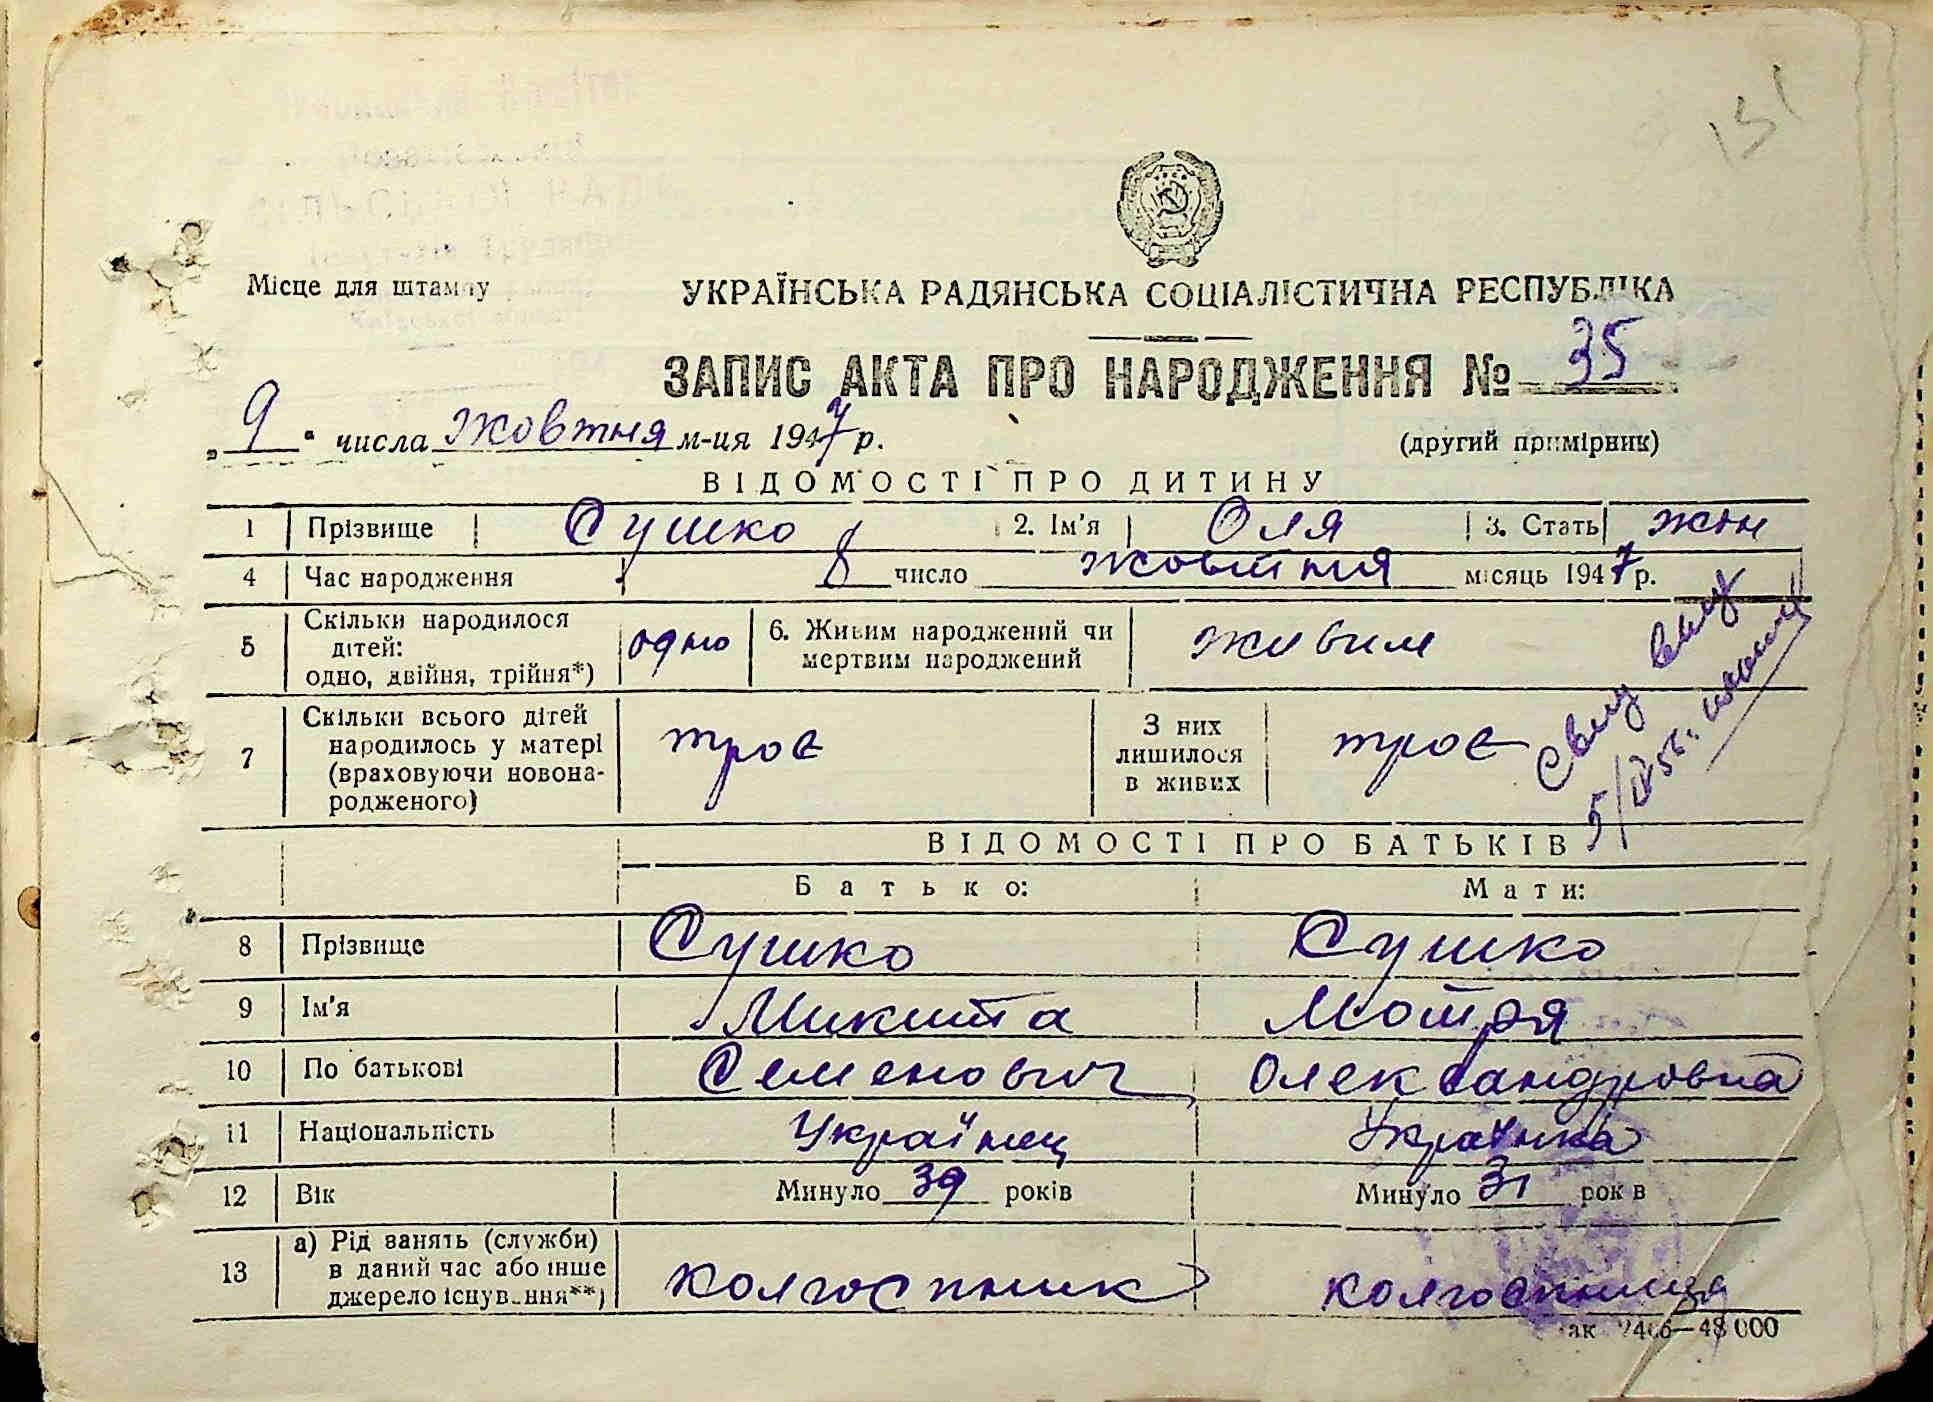 151
Місце для штампу
УКРАЇНСЬКА РАДЯНСЬКА СОЦІАЛІСТИЧНА РЕСПУБЛІКА
ЗАПИС АКТА ПРО НАРОДЖЕННЯ № 35
„9“ числа жовтня м-ця 1947 р.
(другий примірник)
ВІДОМОСТІ ПРО ДИТИНУ
1 Прізвище Сушко 2. Ім'я Оля 3. Стать жін
4 Час народження 8 число жовтня місяць 1947 р.
5 Скільки народилося дітей: одно, двійня, трійня*) одно 6. Живим народжений чи мертвим народжений живим
7 Скільки всього дітей народилось у матері (враховуючи новонародженого) троє З них лишилося в живих троє
5/IV 56
ВІДОМОСТІ ПРО БАТЬКІВ
Батько: Мати:
8 Прізвище Сушко Сушко
9 Ім'я Микита Мотря
10 По батькові Семенович Олександровна
11 Національність Українец Українка
12 Вік Минуло 39 років Минуло 31 рок в
13 а) Рід занять (служби) в даний час або інше джерело існування**) колгоспник колгоспниця